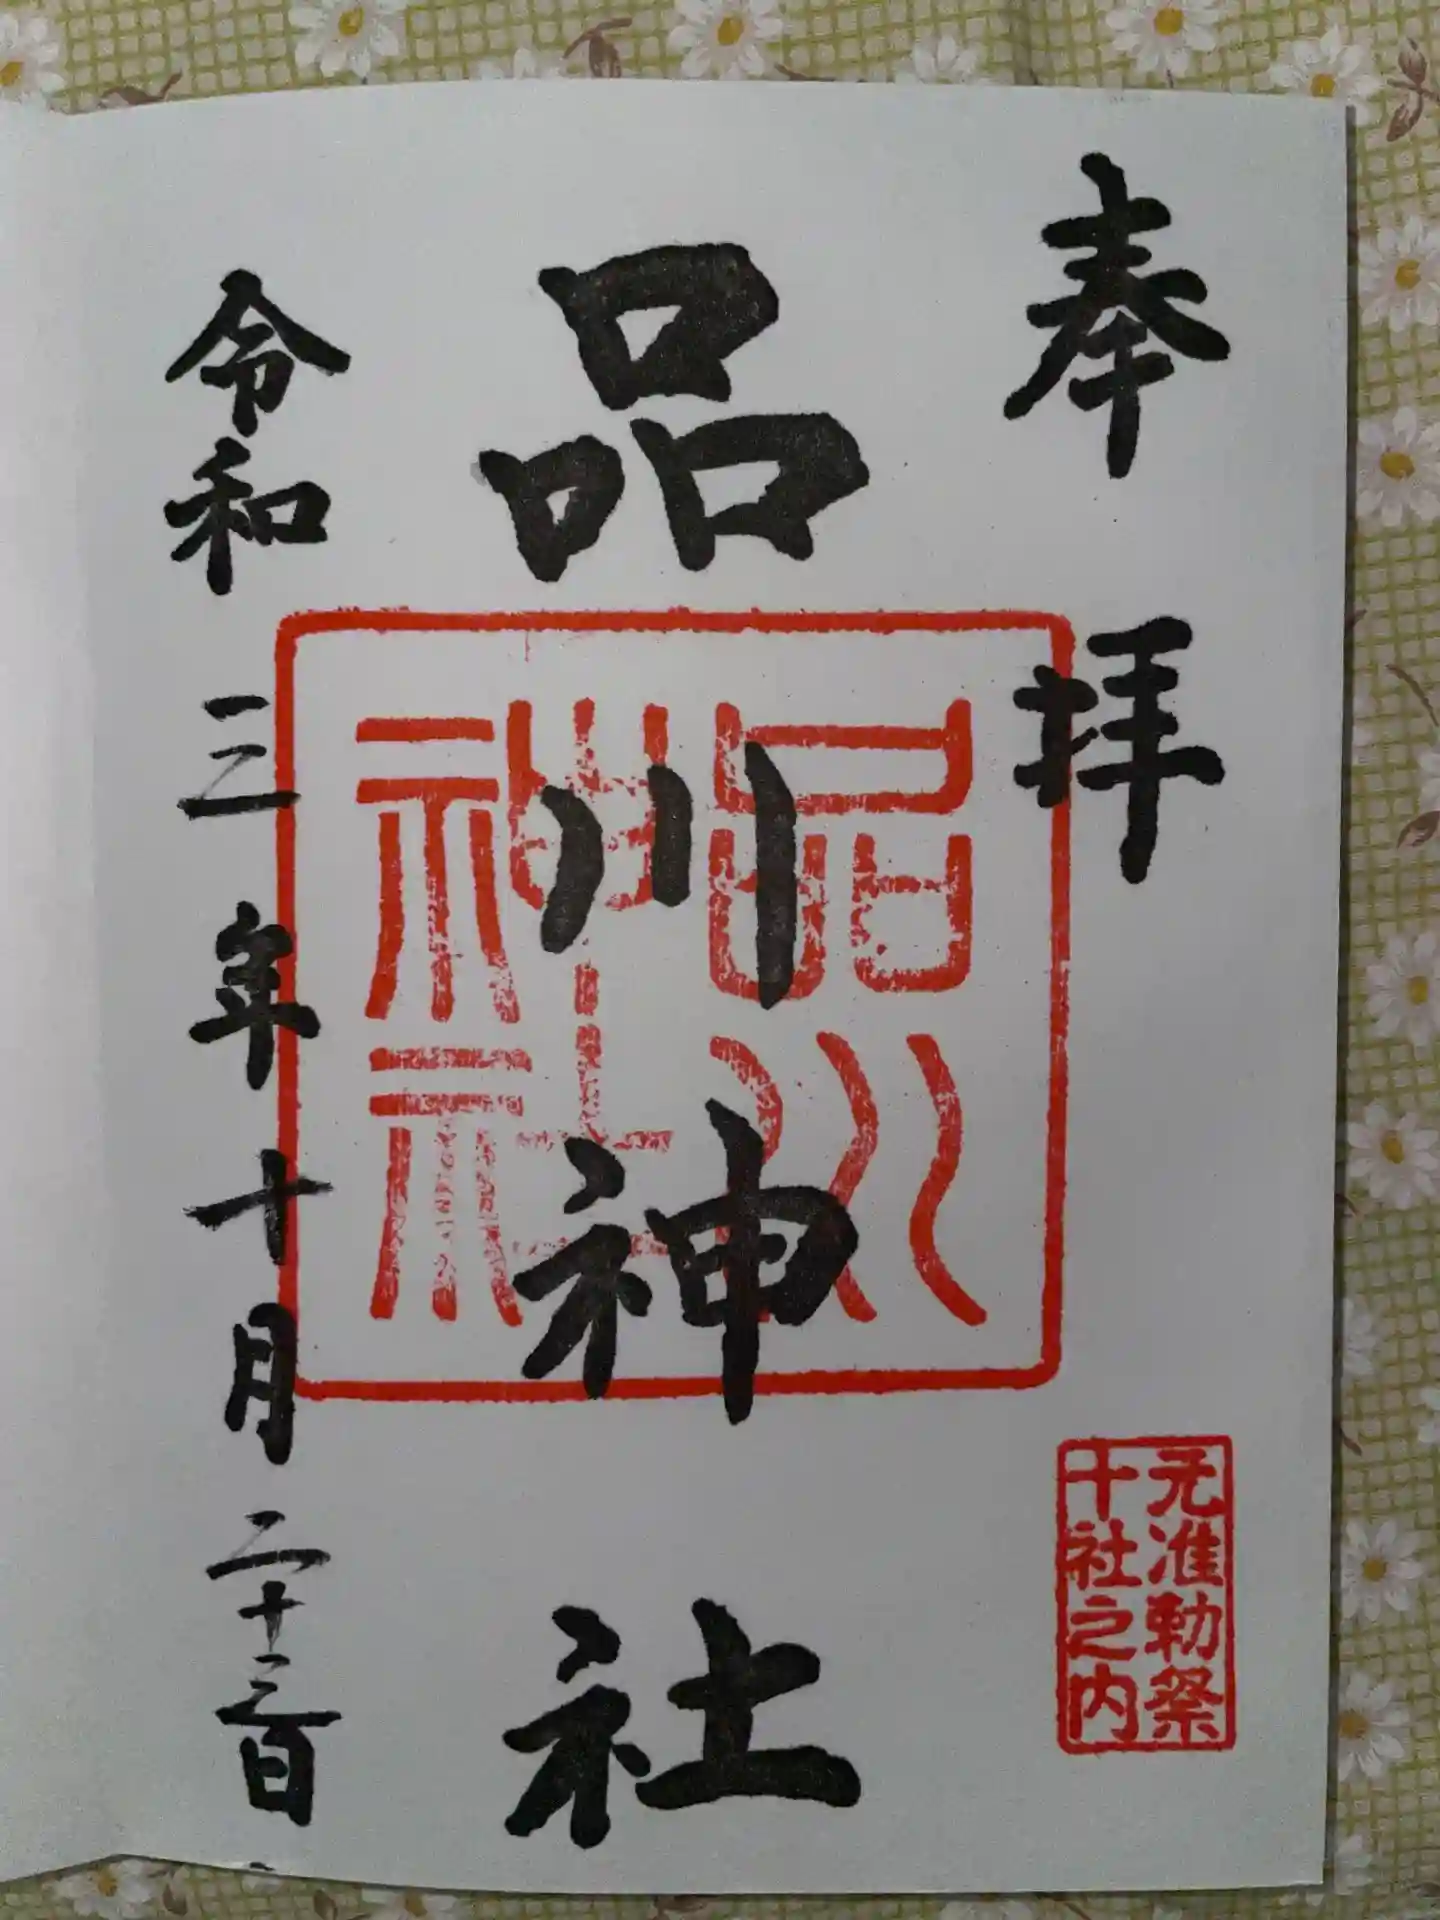 奉拝
品川神社
品川
神社
元准勅祭
十社之内
令和三年十月二十三日